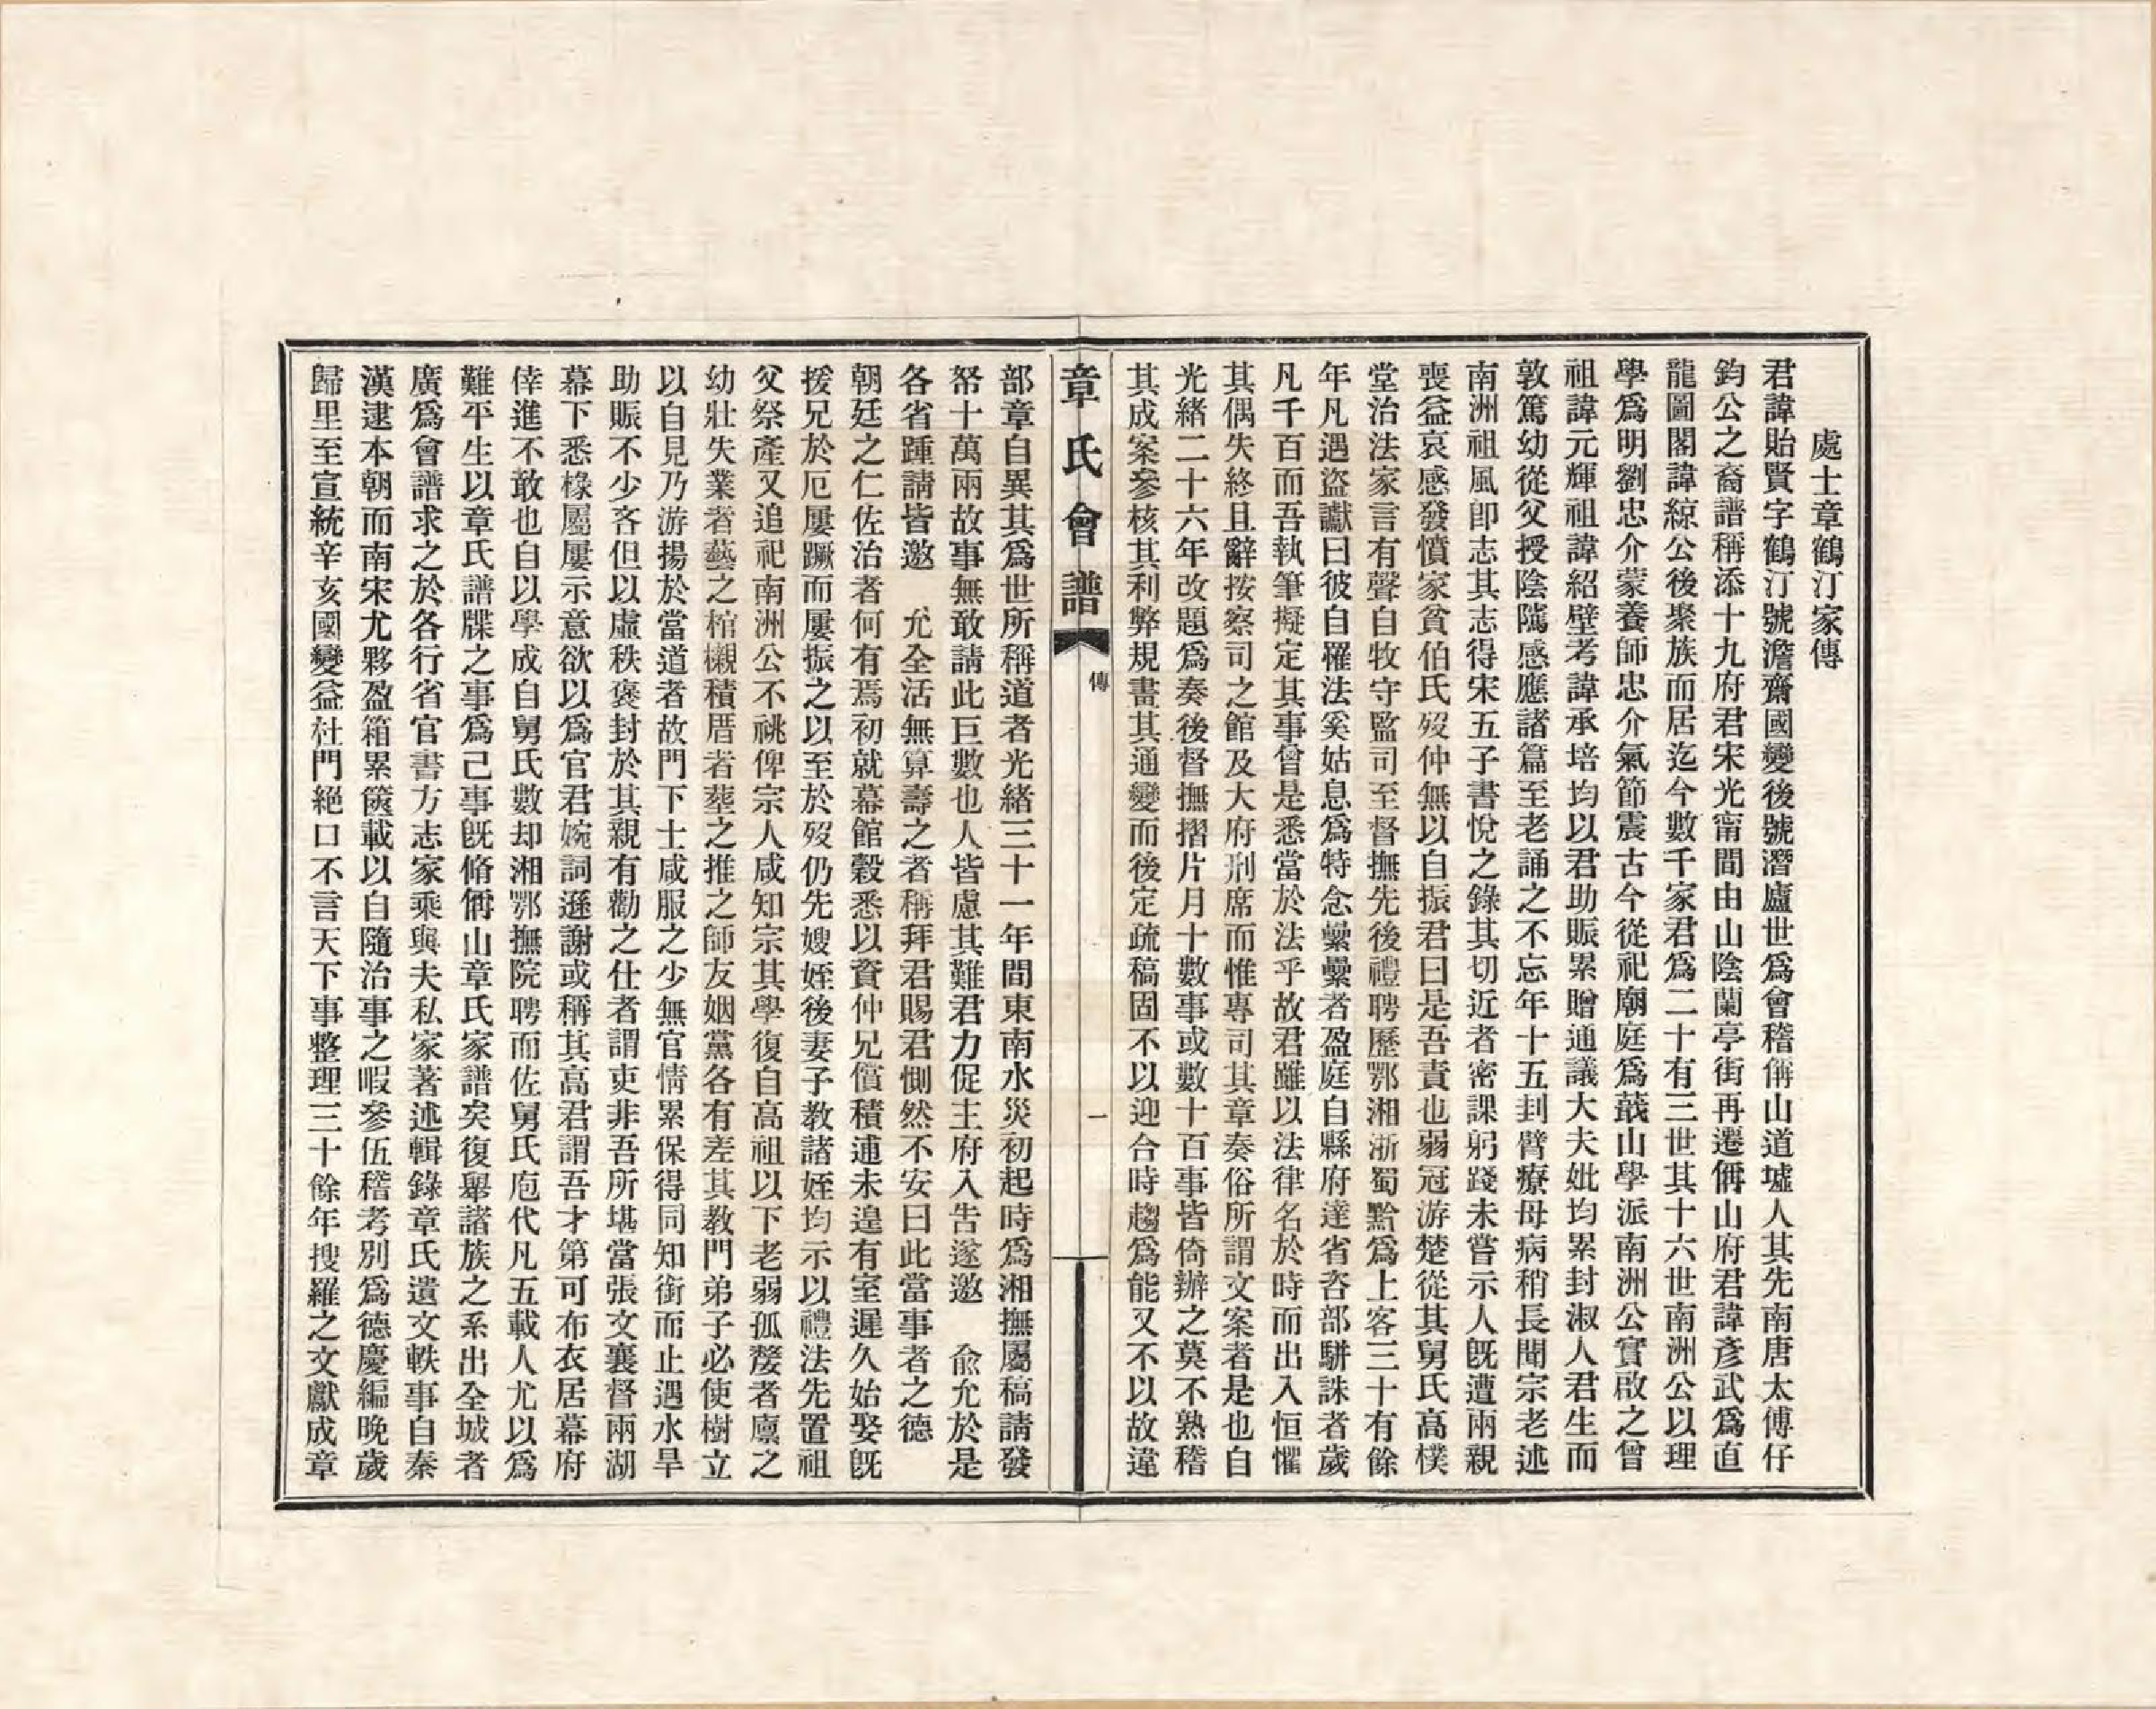 處士章鶴汀家傳
君諱貽賢字鶴汀號澹齋國變後號潛廬世爲會稽偁山道墟人其先南唐太傅仔
鈞公之裔譜稱添十九府君宋光甯間由山陰蘭亭街再遷偁山府君諱彥武爲直
龍圖閣諱綜公後聚族而居迄今數千家君爲二十有三世其十六世南洲公以理
學爲明劉忠介蒙養師忠介氣節震古今從祀廟庭爲蕺山學派南洲公實啟之曾
祖諱元輝祖諱紹壁考諱承培均以君助賑累贈通議大夫妣均累封淑人君生而
敦篤幼從父授陰隲感應諸篇至老誦之不忘年十五刲臂療母病稍長聞宗老述
南洲祖風卽志其志得宋五子書悅之錄其切近者密課躬踐未嘗示人旣遭兩親
喪益哀感發憤家貧伯氏歿仲無以自振君曰是吾責也弱冠游楚從其舅氏高樸
堂治法家言有聲自牧守監司至督撫先後禮聘歷鄂湘浙蜀黔爲上客三十有餘
年凡遇盜讞曰彼自罹法奚姑息爲特念纍纍者盈庭自縣府達省咨部駢誅者歲
凡千百而吾執筆擬定其事曾是悉當於法乎故君雖以法律名於時而出入恒懼
其偶失終且辭按察司之館及大府刑席而惟專司其章奏俗所謂文案者是也自
光緒二十六年改題爲奏後督撫摺片月十數事或數十百事皆倚辦之莫不熟稽
其成案參核其利弊規畫其通變而後定疏稿固不以迎合時趨爲能又不以故違
章氏會譜
傳
一
部章自異其爲世所稱道者光緒三十一年間東南水災初起時爲湘撫屬稿請發
帑十萬兩故事無敢請此巨數也人皆慮其難君力促主府入告遂邀　兪允於是
各省踵請皆邀　允全活無算壽之者稱拜君賜君惻然不安曰此當事者之德
朝廷之仁佐治者何有焉初就幕館穀悉以資仲兄償積逋未遑有室遲久始娶旣
援兄於厄屢蹶而屢振之以至於歿仍先嫂姪後妻子教諸姪均示以禮法先置祖
父祭產又追祀南洲公不祧俾宗人咸知宗其學復自高祖以下老弱孤嫠者廩之
幼壯失業者藝之棺櫬積厝者葬之推之師友姻黨各有差其教門弟子必使樹立
以自見乃游揚於當道者故門下士咸服之少無官情累保得同知銜而止遇水旱
助賑不少吝但以虛秩褒封於其親有勸之仕者謂吏非吾所堪當張文襄督兩湖
幕下悉椽屬屢示意欲以爲官君婉詞遜謝或稱其高君謂吾才第可布衣居幕府
倖進不敢也自以學成自舅氏數却湘鄂撫院聘而佐舅氏庖代凡五載人尤以爲
難平生以章氏譜牒之事爲己事旣脩偁山章氏家譜矣復舉諸族之系出全城者
廣爲會譜求之於各行省官書方志家乘與夫私家著述輯錄章氏遺文軼事自秦
漢逮本朝而南宋尤夥盈箱累篋載以自隨治事之暇參伍稽考別爲德慶編晚歲
歸里至宣統辛亥國變益杜門絕口不言天下事整理三十餘年搜羅之文獻成章